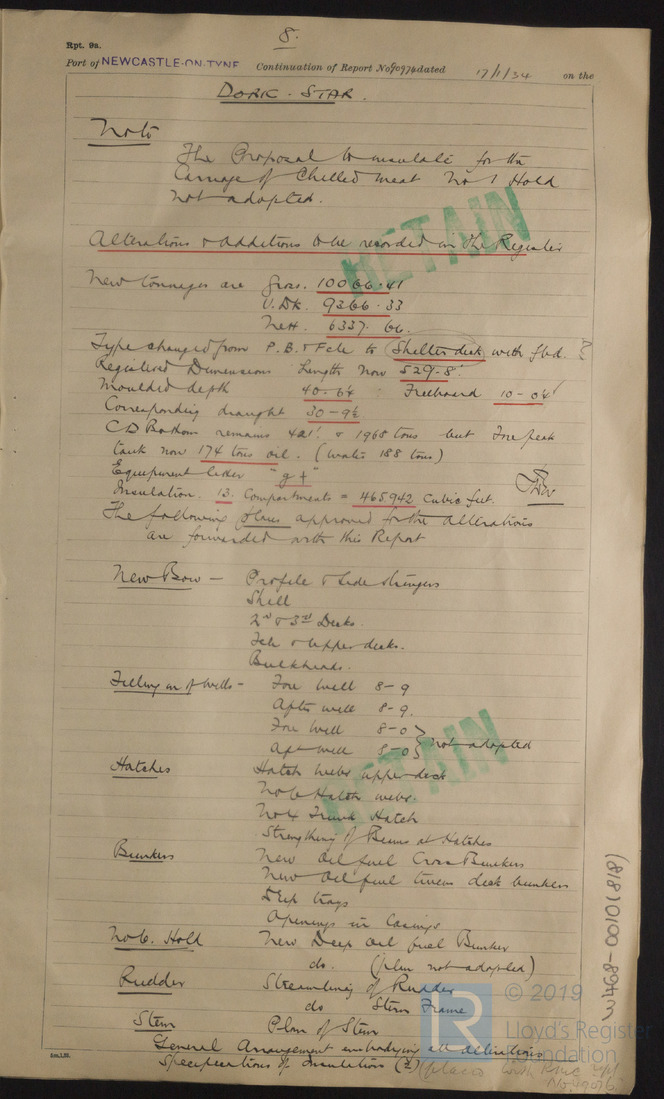 8.
Rpt. 9a.
Port of NEWCASTLE-ON-TYNE Continuation of Report No 90976 dated 17/11/34 on the
DORIC - STAR.
Note
The Proposal to insulate for the
Carriage of Chilled meat No 1 Hold
not adopted.
RETAIN
Alterations & additions to be recorded in the Register
New tonnages are Gross. 10066.41
U.Dk. 9366.33
Nett. 6337.66.
Type changed from P.B. & Fcle to Shelter deck with fbd.
Registered Dimensions Length now 529.8'.
Moulded depth 40-6¼ : Freeboard 10-0¼
Corresponding draught 30-9½
C D Bottom remains 421' & 1968 tons but Fore peak
tank now 174 tons oil. (water 188 tons)
Equipment letter "g †"
Insulation. 13. Compartments = 465942 cubic feet.
The following plans approved for the alterations
are forwarded with this Report
New Bow - Profile & side stringers
Shell
2nd & 3rd Decks.
Fcle & upper decks.
Bulkheads.
Filling in of wells - Fore well 8-9
After well 8-9.
Fore well 8-0
Aft well 8-0 } not adopted
RETAIN
Hatches Hatch webs upper deck
No 6 Hatch webs.
No 4 Trunk Hatch
Strengthing of Beams at Hatches
Bunkers New oil fuel Cross Bunkers
New oil fuel tween deck bunkers
Drip trays
Openings in Casings
No 6. Hold New Deep oil fuel Bunker
do. (plan not adopted)
Rudder Streamlining of Rudder
do Stern Frame
Stem Plan of Stem
General Arrangement embodying all alterations
Specifications of Insulation (2) (placed with RMC rpt
No 49076
© 2019
Lloyd's Register
Foundation